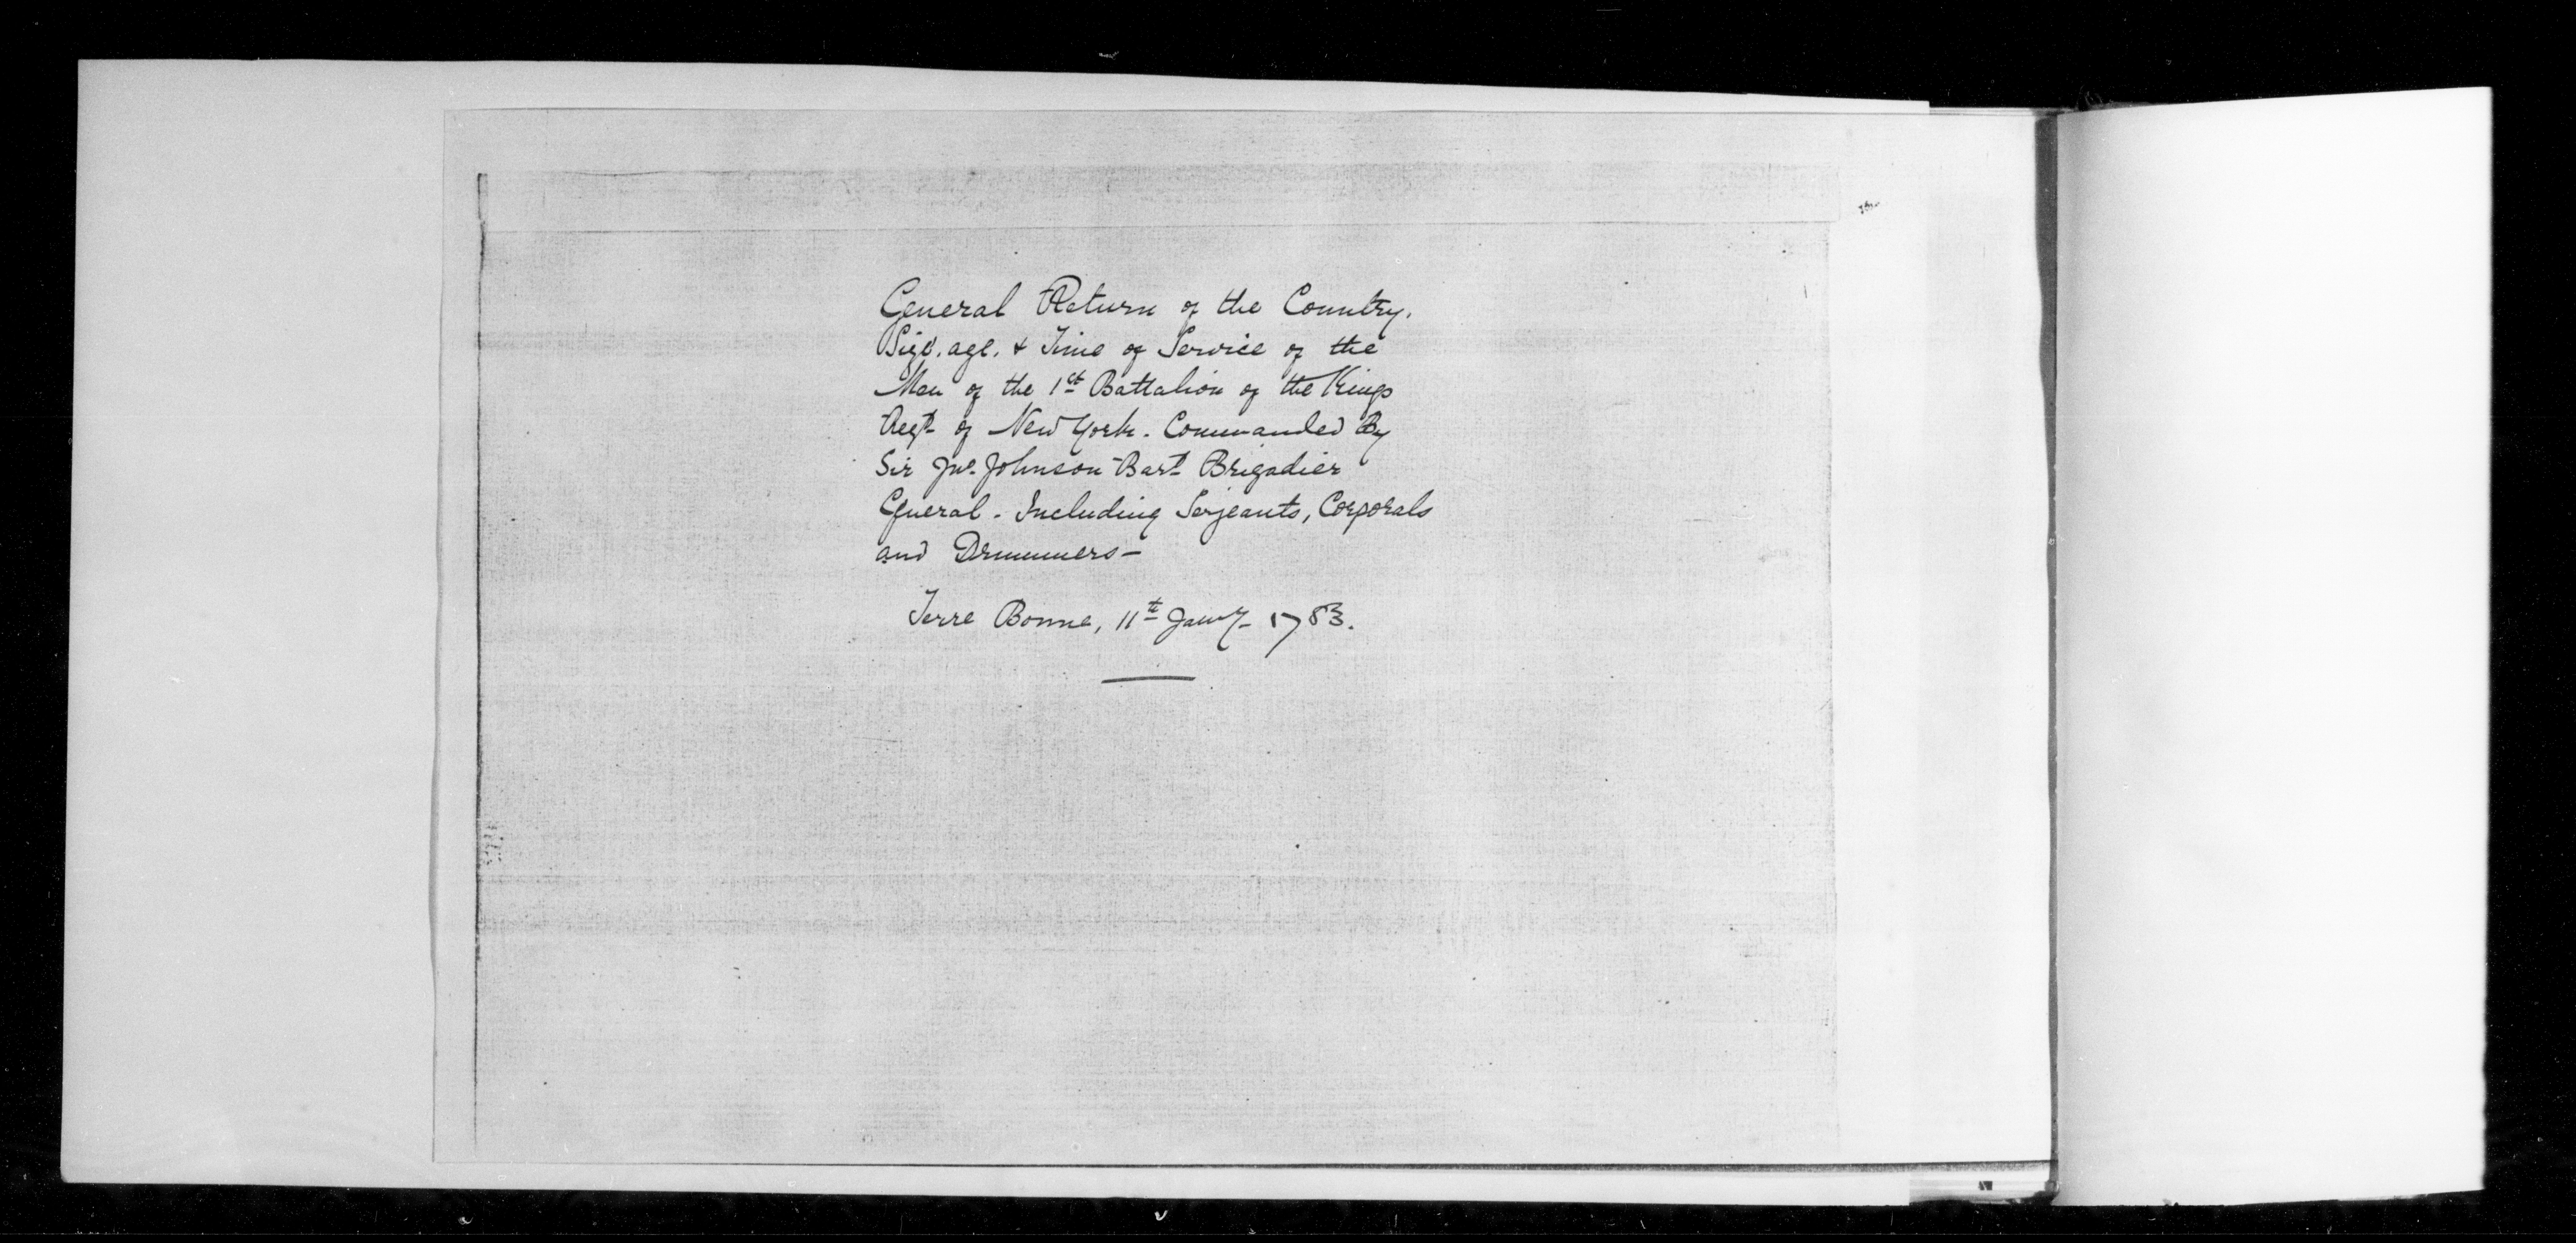 General Return of the Country.
Size. age. & Time of Service of the
Men of the 1st Battalion of the Kings
Regt of New York. Commanded By
Sir Jno. Johnson Bart Brigadier
General - Including Serjeants, Corporals
and Drummers -
Terre Bonne, 11th Jany - 1783.